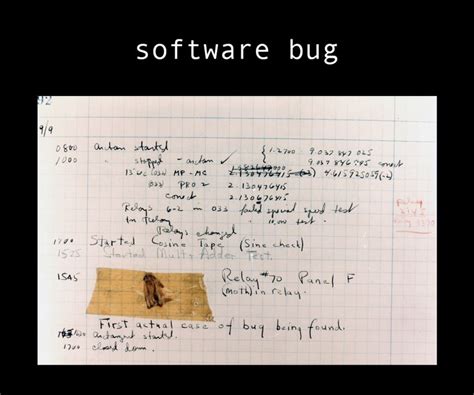 software bug
92
9/9
0800 antan started
1000 " stopped - antan ✓
{ 1.2700 9.037 847 025
9.037 846 995 correct
13"uc (032) MP - MC 2.130476415 4.615925059(-2)
(033) PRO 2 2.130476415
correct 2.130676415
Relays 6-2 in 033 failed special speed test
in Relay " 10,000 test.
Relays changed
1700 Started Cosine Tape (Sine check)
1525 Started Multi Adder Test.
1545 Relay #70 Panel F
(moth) in relay.
First actual case of bug being found.
antangent started.
1700 closed down.